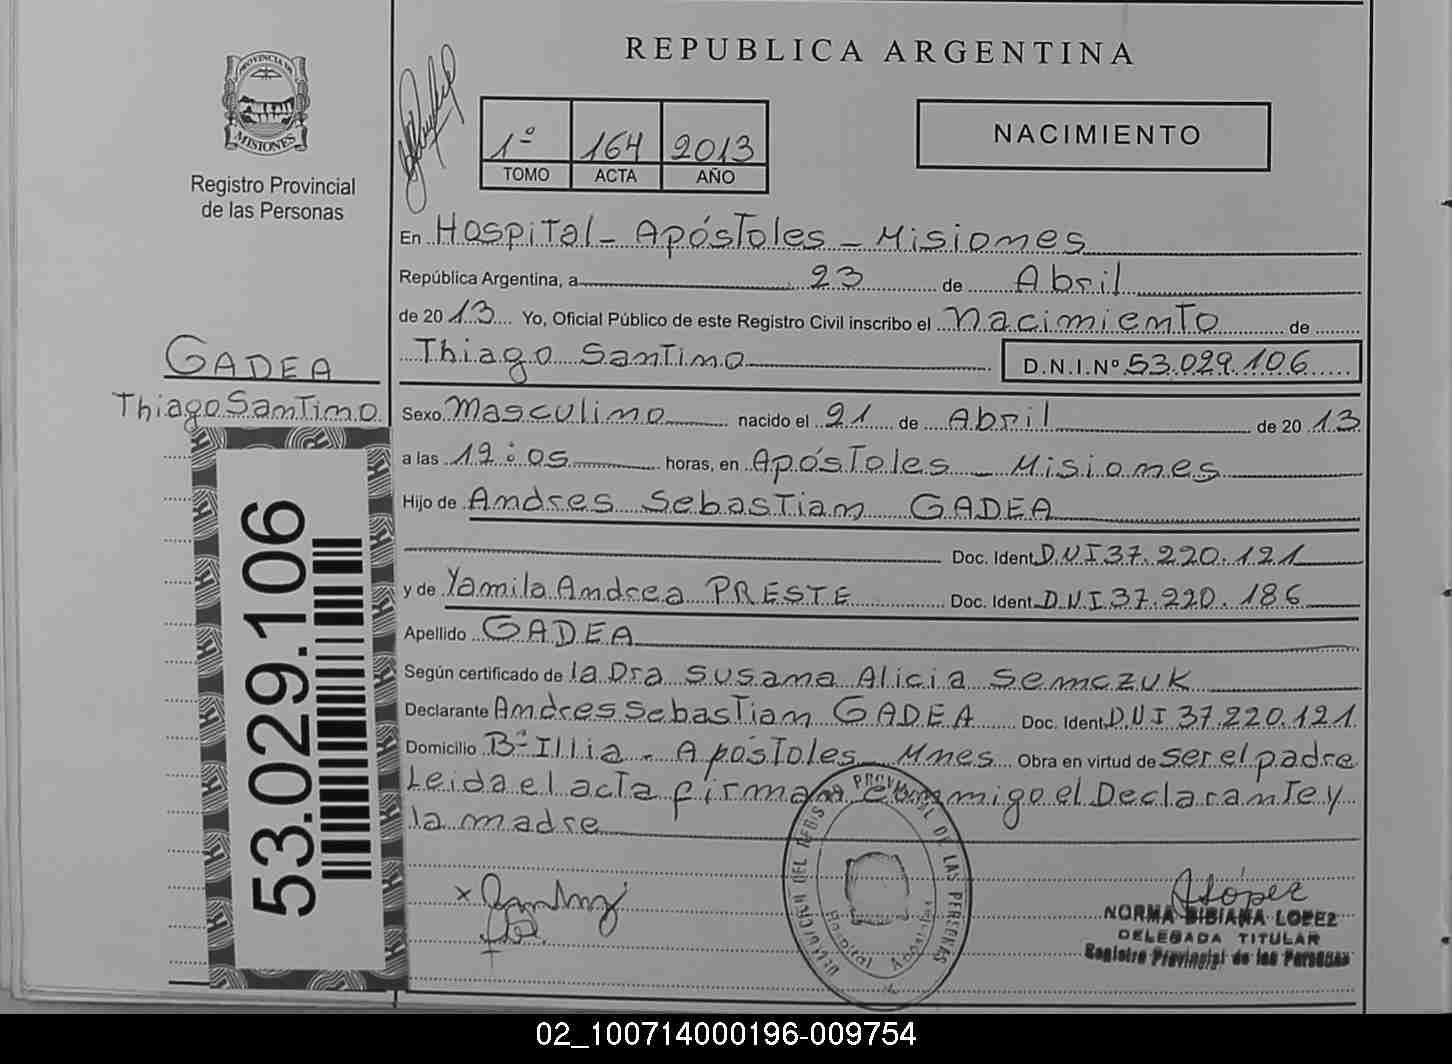 REPUBLICA ARGENTINA
PROVINCIA DE
MISIONES
Registro Provincial
de las Personas
1º 164 2013
TOMO ACTA AÑO
NACIMIENTO
En Hospital - Apóstoles - Misiones
República Argentina, a 23 de Abril
de 2013 Yo, Oficial Público de este Registro Civil inscribo el nacimiento de
Thiago Santino D.N.I.Nº 53.029.106
GADEA
Thiago Santino
Sexo Masculino nacido el 21 de Abril de 2013
a las 12:05 horas, en Apóstoles - Misiones
Hijo de Andres Sebastian GADEA
Doc. Ident. D.N.I 37.220.121
y de Yamila Andrea PRESTE Doc. Ident. D.N.I. 37.220.186
Apellido GADEA
Según certificado de la Dra Susana Alicia Semczuk
Declarante Andres Sebastian GADEA Doc. Ident. D.N.I 37.220.121
Domicilio Bº Illia - Apóstoles Mnes Obra en virtud de ser el padre
Leida el acta firman conmigo el Declarante y
la madre
53.029.106
DELEGACION DEL REGISTRO PROVINCIAL DE LAS PERSONAS
Hospital Apóstoles
López
NORMA BIBIANA LOPEZ
DELEGADA TITULAR
Registro Provincial de las Personas
02_100714000196-009754